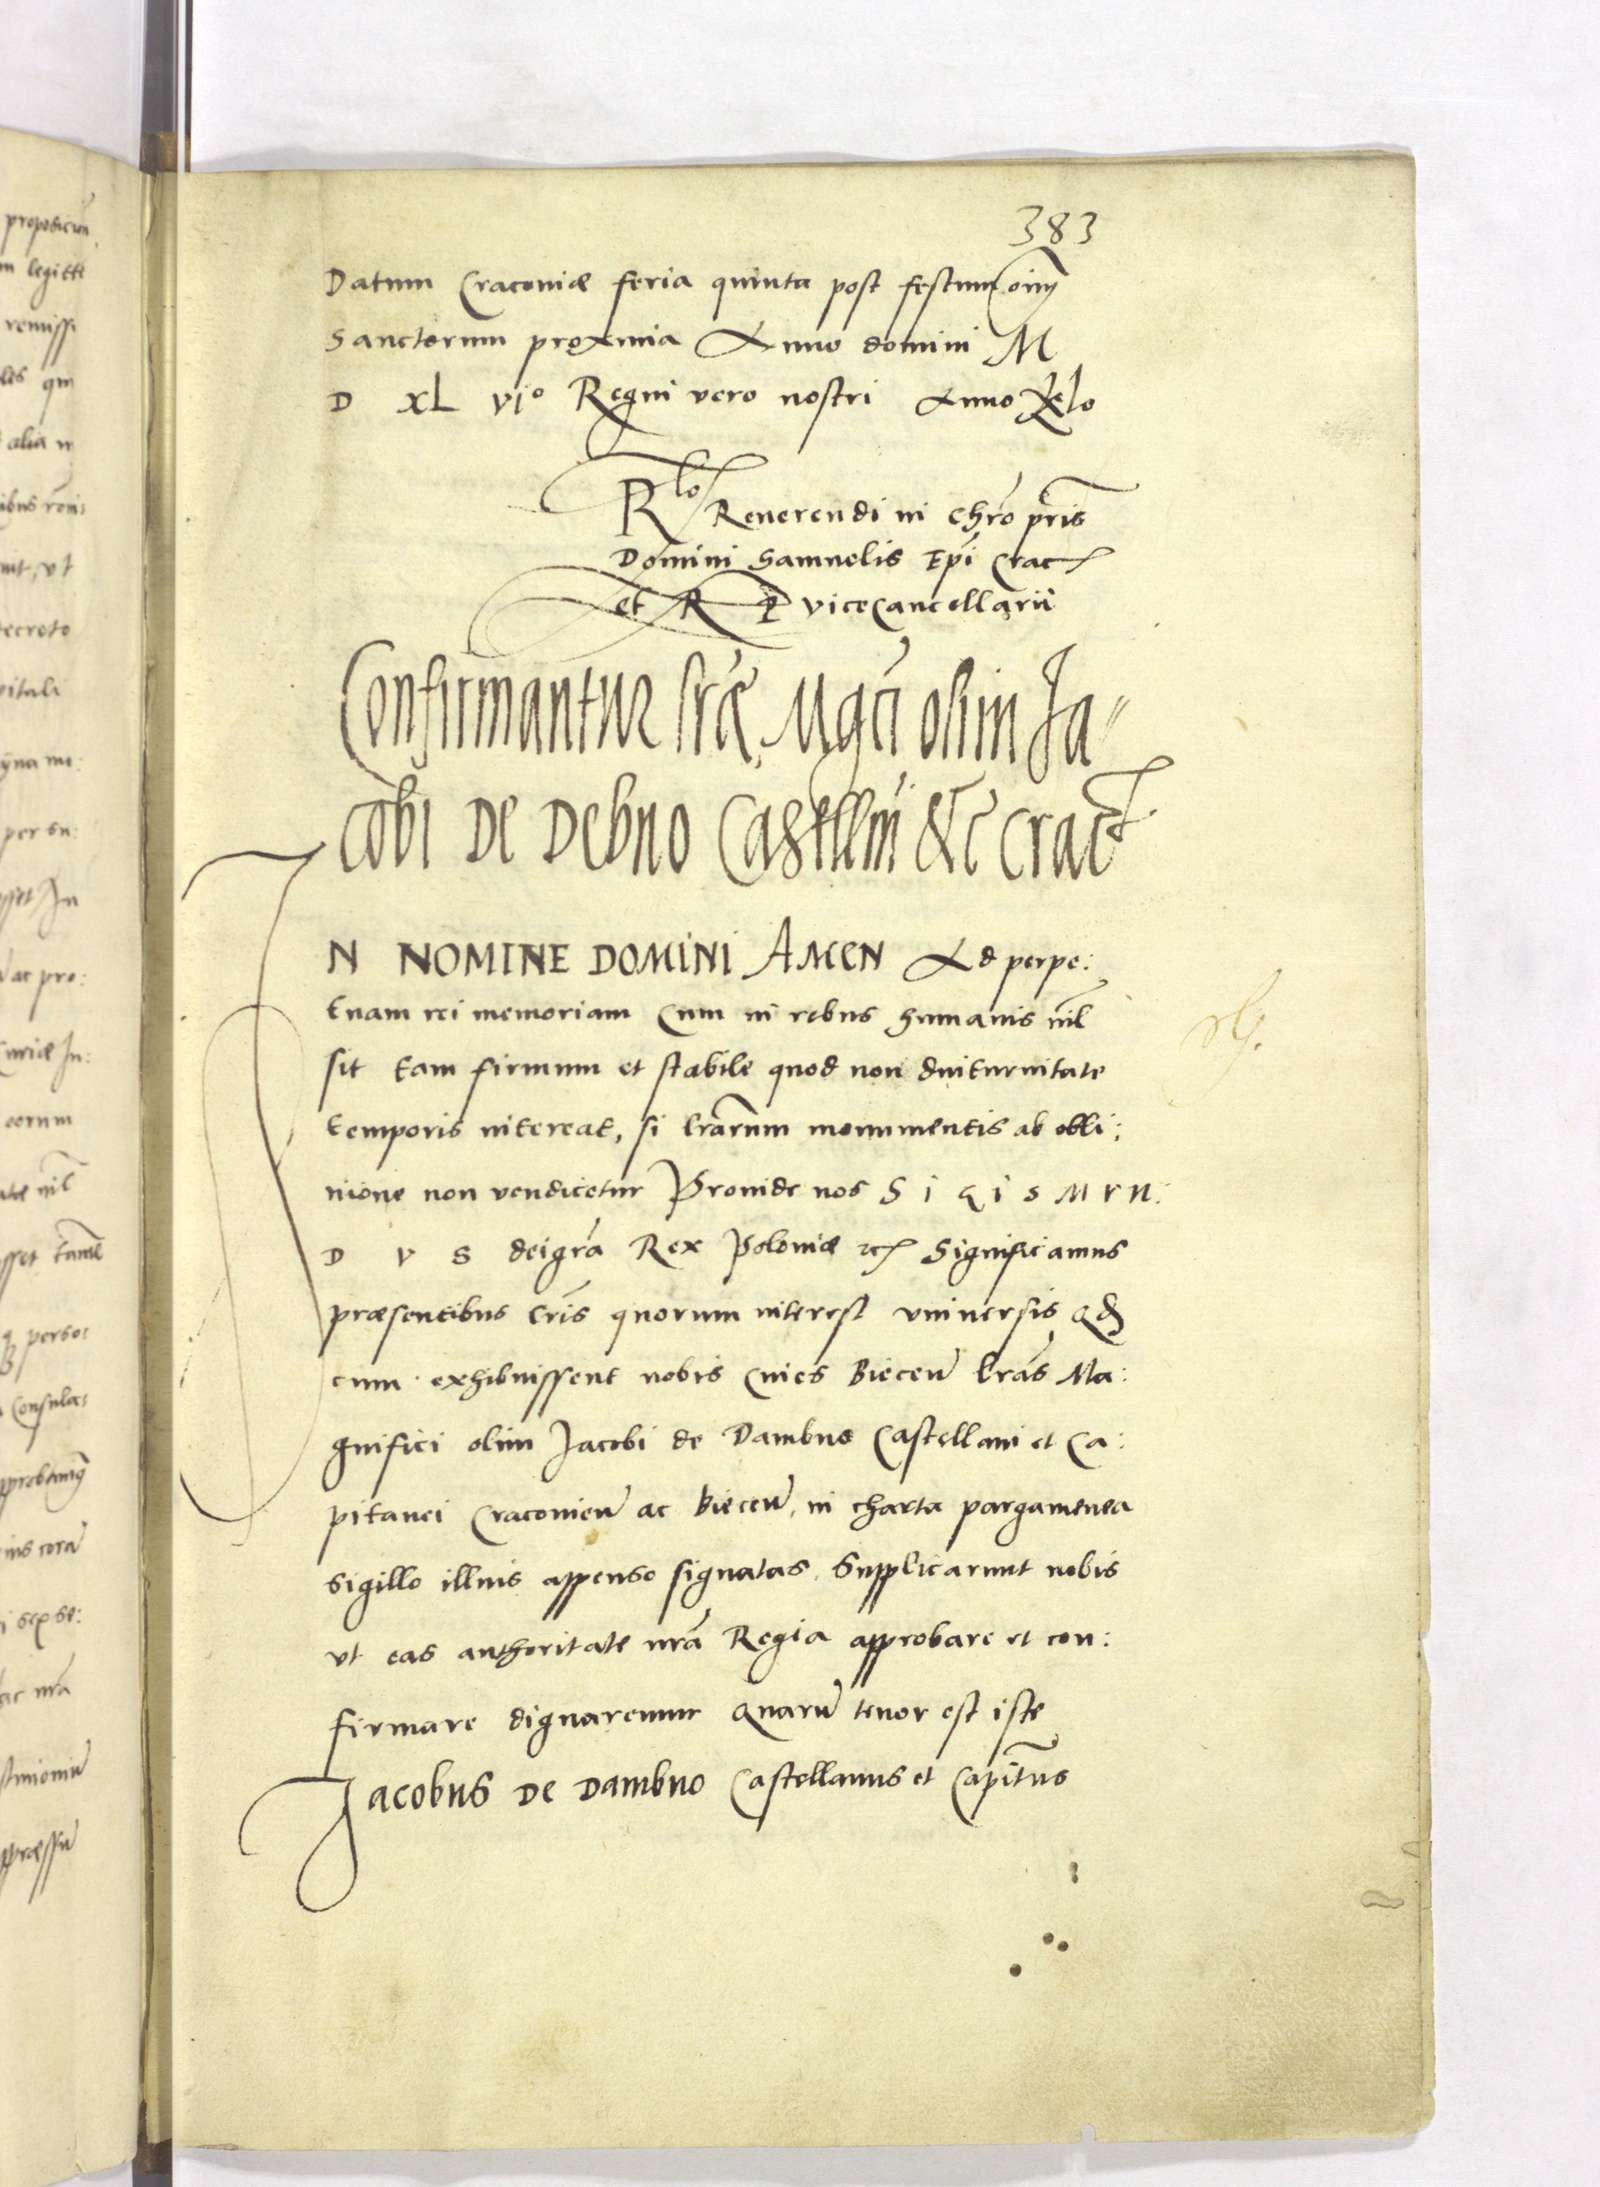 383
Datum Cracoviæ feria quinta post festum oīm
Sanctorum proxima Anno domini M
D XL VIº Regni vero nostri Anno XLº
Rlo Reverendi in Chro pris
Domini Samuelis Epi Crac
et R P vicecancellarii
Confirmantur lræ Mgci olim Ja=
cobi de Debno Castellni &c Crac
N NOMINE DOMINI AMEN Ad perpe:
tuam rei memoriam Cum in rebus humanis nil
sit tam firmum et stabile quod non diuturnitate
temporis intereat, si lrarum monumentis ab obli:
uione non vendicetur Provide nos S I G I S M V N:
D V S dei gra Rex Poloniæ &c Significamus
præsentibus lris quorum interest universis qd
cum exhibuissent nobis Cives Biecen lras Ma:
gnifici olim Jacobi de Dambno Castellani et Ca:
pitanei Cracovien ac Biecen, in charta pargamenea
sigillo illius appenso signatas. Supplicarunt nobis
ut eas authoritate nra Regia approbare et con:
firmare dignaremur Quaru tenor est iste
Jacobus de Dambno Castellanus et Capitnus
proposicion
m legitt
remissi
les qui
alia
nt, ut
decreto
pitali
per sn:
sset In
ac pro:
Curiæ In:
eorum
nil
sset tame
perso:
Consula:
approbamq
nis cora
nra
stimoniu